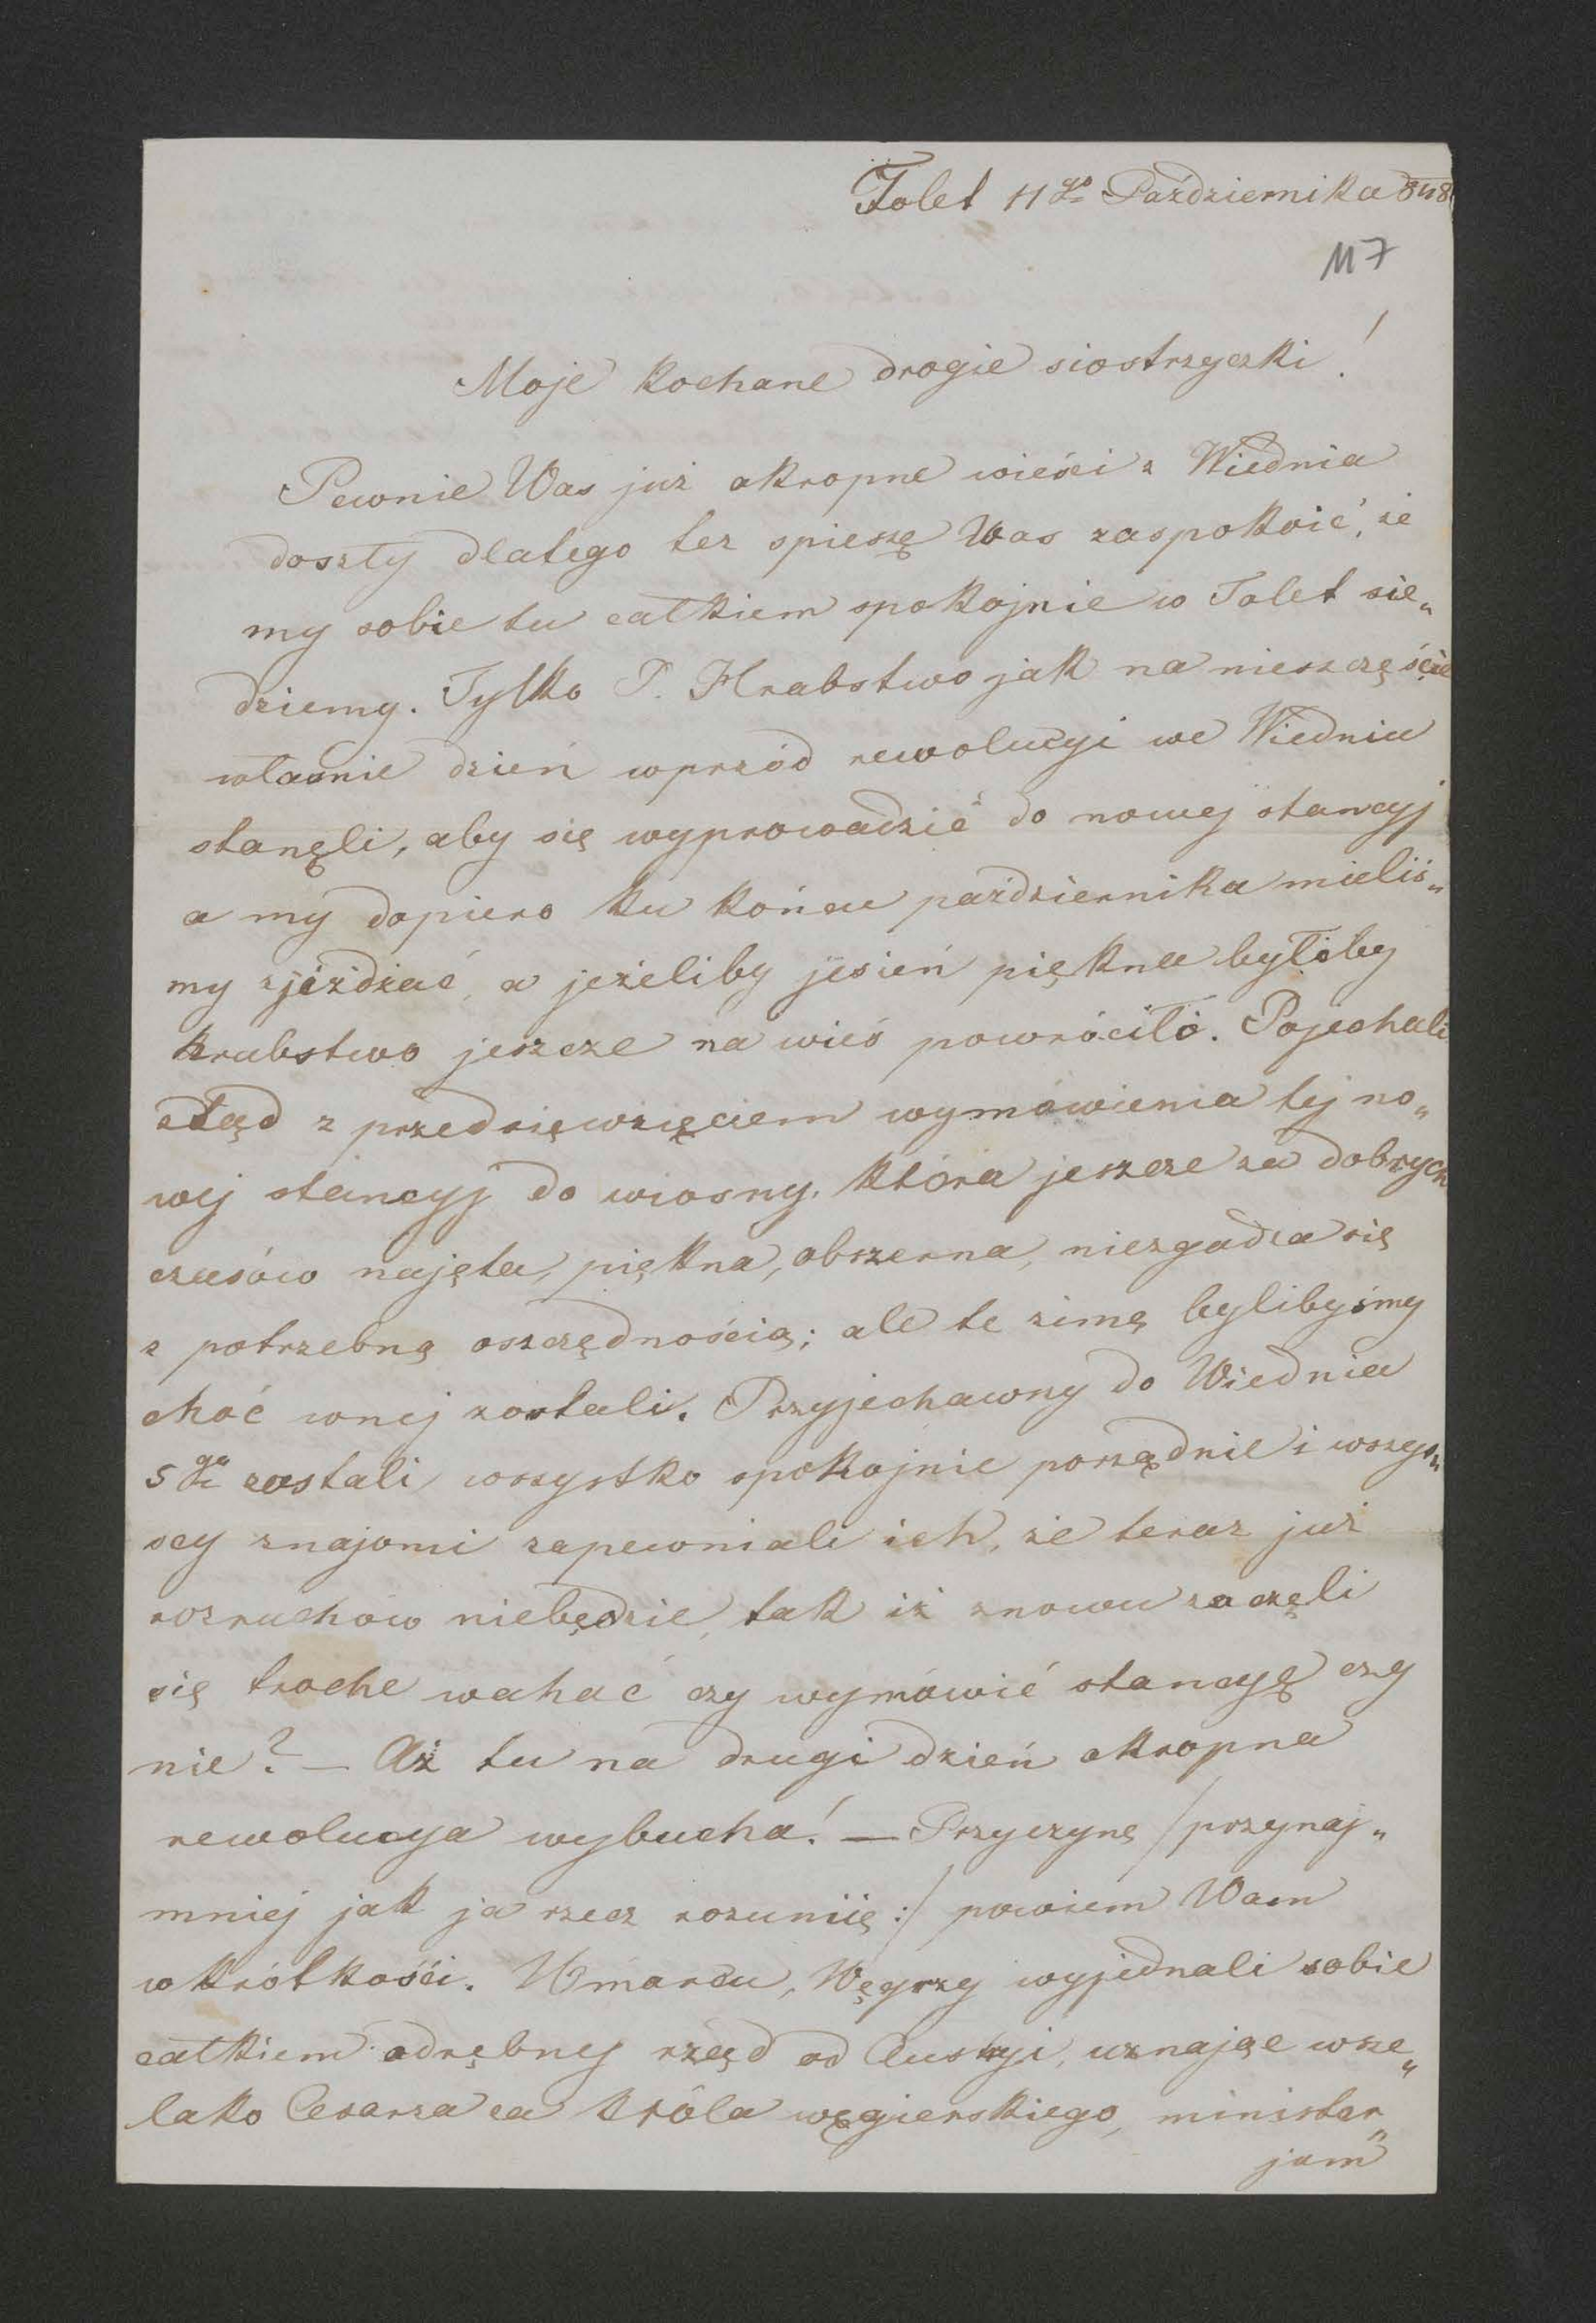 Tolet 11go Października 848
117
Moje kochane drogie siostrzyczki!
Pewnie Was już okropne wieści z Wiednia
doszły dlatego tez spieszę Was zaspokoić, że
my sobie tu całkiem spokojnie w Tolet sie„
dziemy. Tylko P. Hrabstwo jak na nieszczęście
własnie dzień wprzód rewolucyi we Wiedniu
stanęli, aby się wyprowadzić do nowej stancyj
a my dopiero ku końcu października mieliś„
my zjeżdżać, a jeżeliby jesień piękna byłoby
hrabstwo jeszcze na wieś powróciło. Pojechali
ztąd z przedsięwzięciem wymówienia tej no„
wej stancyj do wiosny, która jeszcze za dobrych
czasów najęta, piękna, obszerna, niezgadza się
z potrzebną oszczędnością; ale te zimę bylibyśmy
choć wnej zostali. Przyjechawny do Wiednia
5go zastali wszystko spokojnie porządnie i wszys„
scy znajomi zapewniali ich, że teraz już
rozruchów niebędzie, tak iż znowu zaczęli
się troche wahać czy wymówić stancyę czy
nie? — Aż tu na drugi dzień okropna
rewolucya wybucha! — Przyczynę /przynaj„
mniej jak ja rzecz rozumię:/ powiem Wam
wkrótkości. Wmarcu, Węgrzy wyjednali sobie
całkiem odrębny rząd od Austryi, uznając wsze„
lako Cesarza za króla węgierskiego, minister„
jum